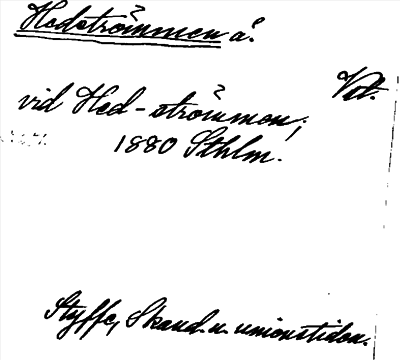 Hedströmmen å.
Vstm.
vid Hed-strömmen,
1880 Sthlm.
Styffe, Skand. u. unionstiden.